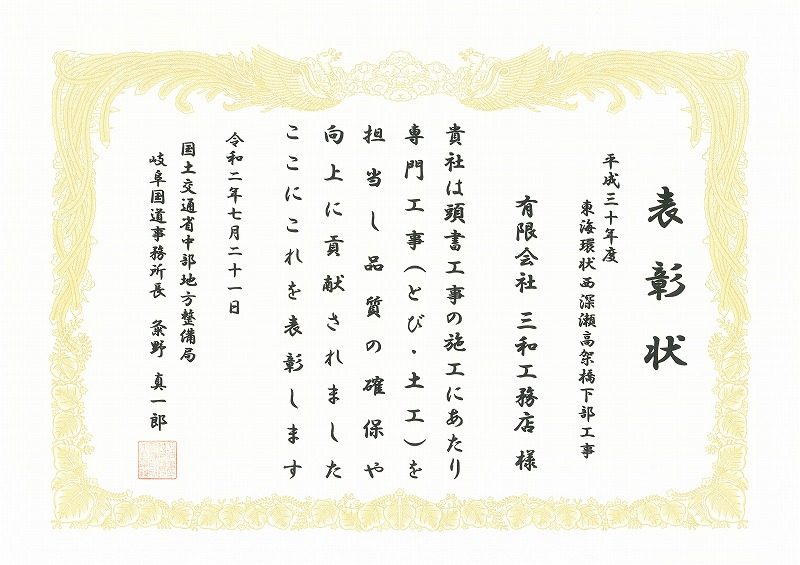 表彰状
平成三十年度
東海環状西深瀬高架橋下部工事
有限会社 三和工務店 様
貴社は頭書工事の施工にあたり
専門工事(とび・土工)を
担当し品質の確保や
向上に貢献されました
ここにこれを表彰します
令和二年七月二十一日
国土交通省中部地方整備局
岐阜国道事務所長 粂野 真一郎